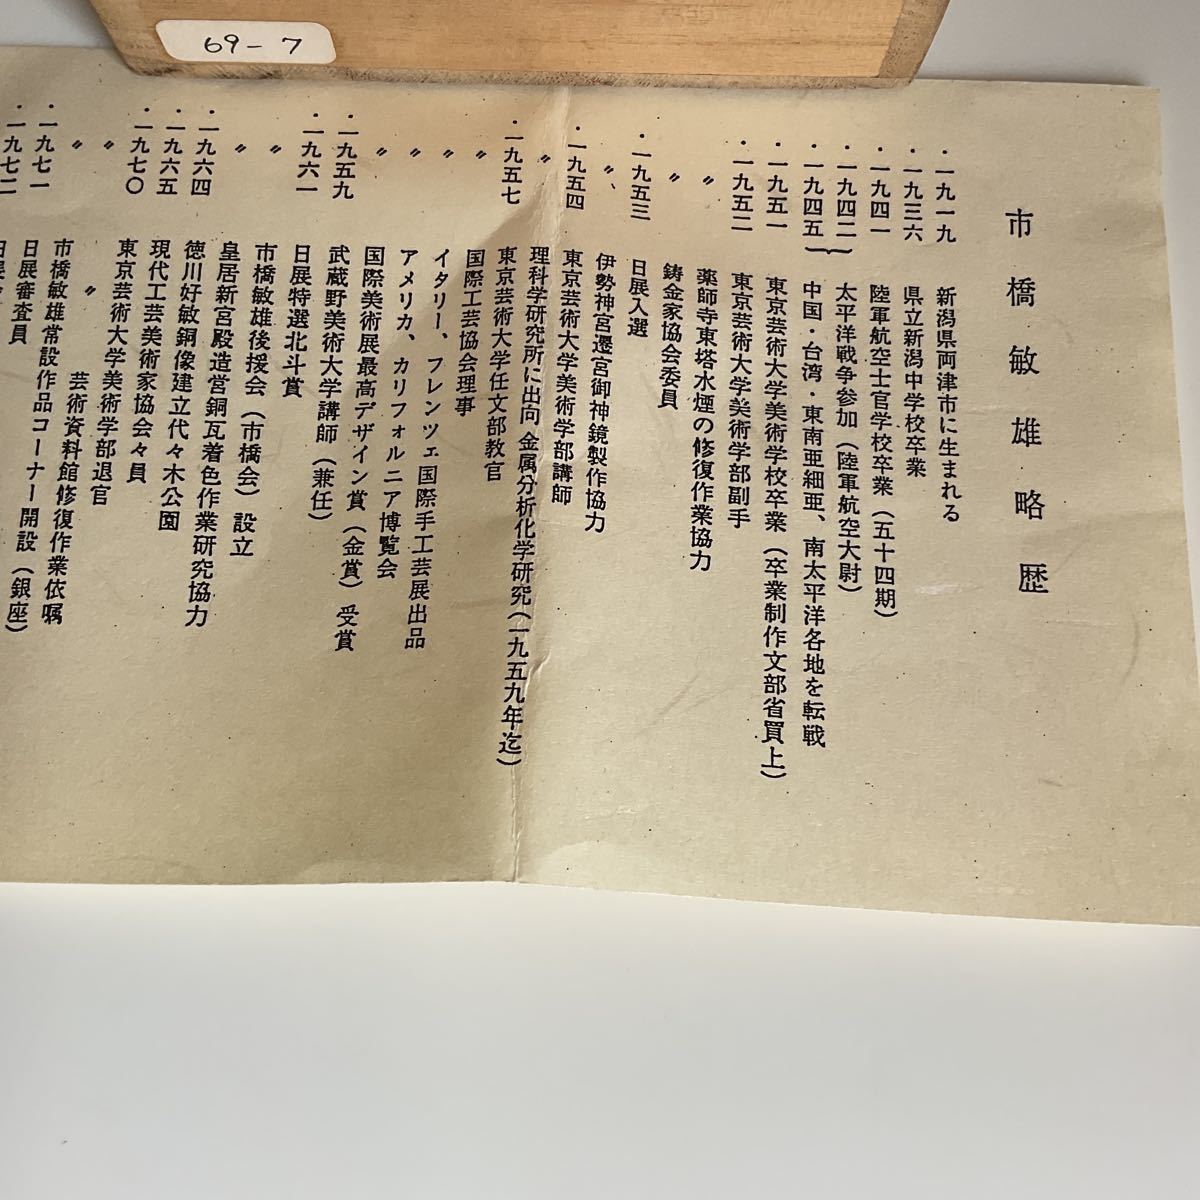 69-7
市橋敏雄略歴
・一九一九 新潟県両津市に生まれる
・一九三六 県立新潟中学校卒業
・一九四一 陸軍航空士官学校卒業(五十四期)
・一九四二 太平洋戦争参加(陸軍航空大尉)
・一九四五 中国・台湾・東南亜細亜、南太平洋各地を転戦
・一九五一 東京芸術大学美術学校卒業(卒業制作文部省買上)
・一九五二 東京芸術大学美術学部副手
〃 薬師寺東塔水煙の修復作業協力
〃 鋳金家協会委員
・一九五三 日展入選
〃 伊勢神宮遷宮御神鏡製作協力
・一九五四 東京芸術大学美術学部講師
〃 理科学研究所に出向 金属分析化学研究(一九五九年迄)
・一九五七 東京芸術大学任文部教官
〃 国際工芸協会理事
〃 イタリー、フレンツェ国際手工芸展出品
〃 アメリカ、カリフォルニア博覧会
〃 国際美術展最高デザイン賞(金賞)受賞
・一九五九 武蔵野美術大学講師(兼任)
・一九六一 日展特選北斗賞
〃 市橋敏雄後援会(市橋会)設立
〃 皇居新宮殿造営銅瓦着色作業研究協力
・一九六四 徳川好敏銅像建立代々木公園
・一九六五 現代工芸美術家協会々員
・一九七〇 東京芸術大学美術学部退官
〃 〃 芸術資料館修復作業依嘱
〃 市橋敏雄常設作品コーナー開設(銀座)
・一九七一 日展審査員
・一九七二